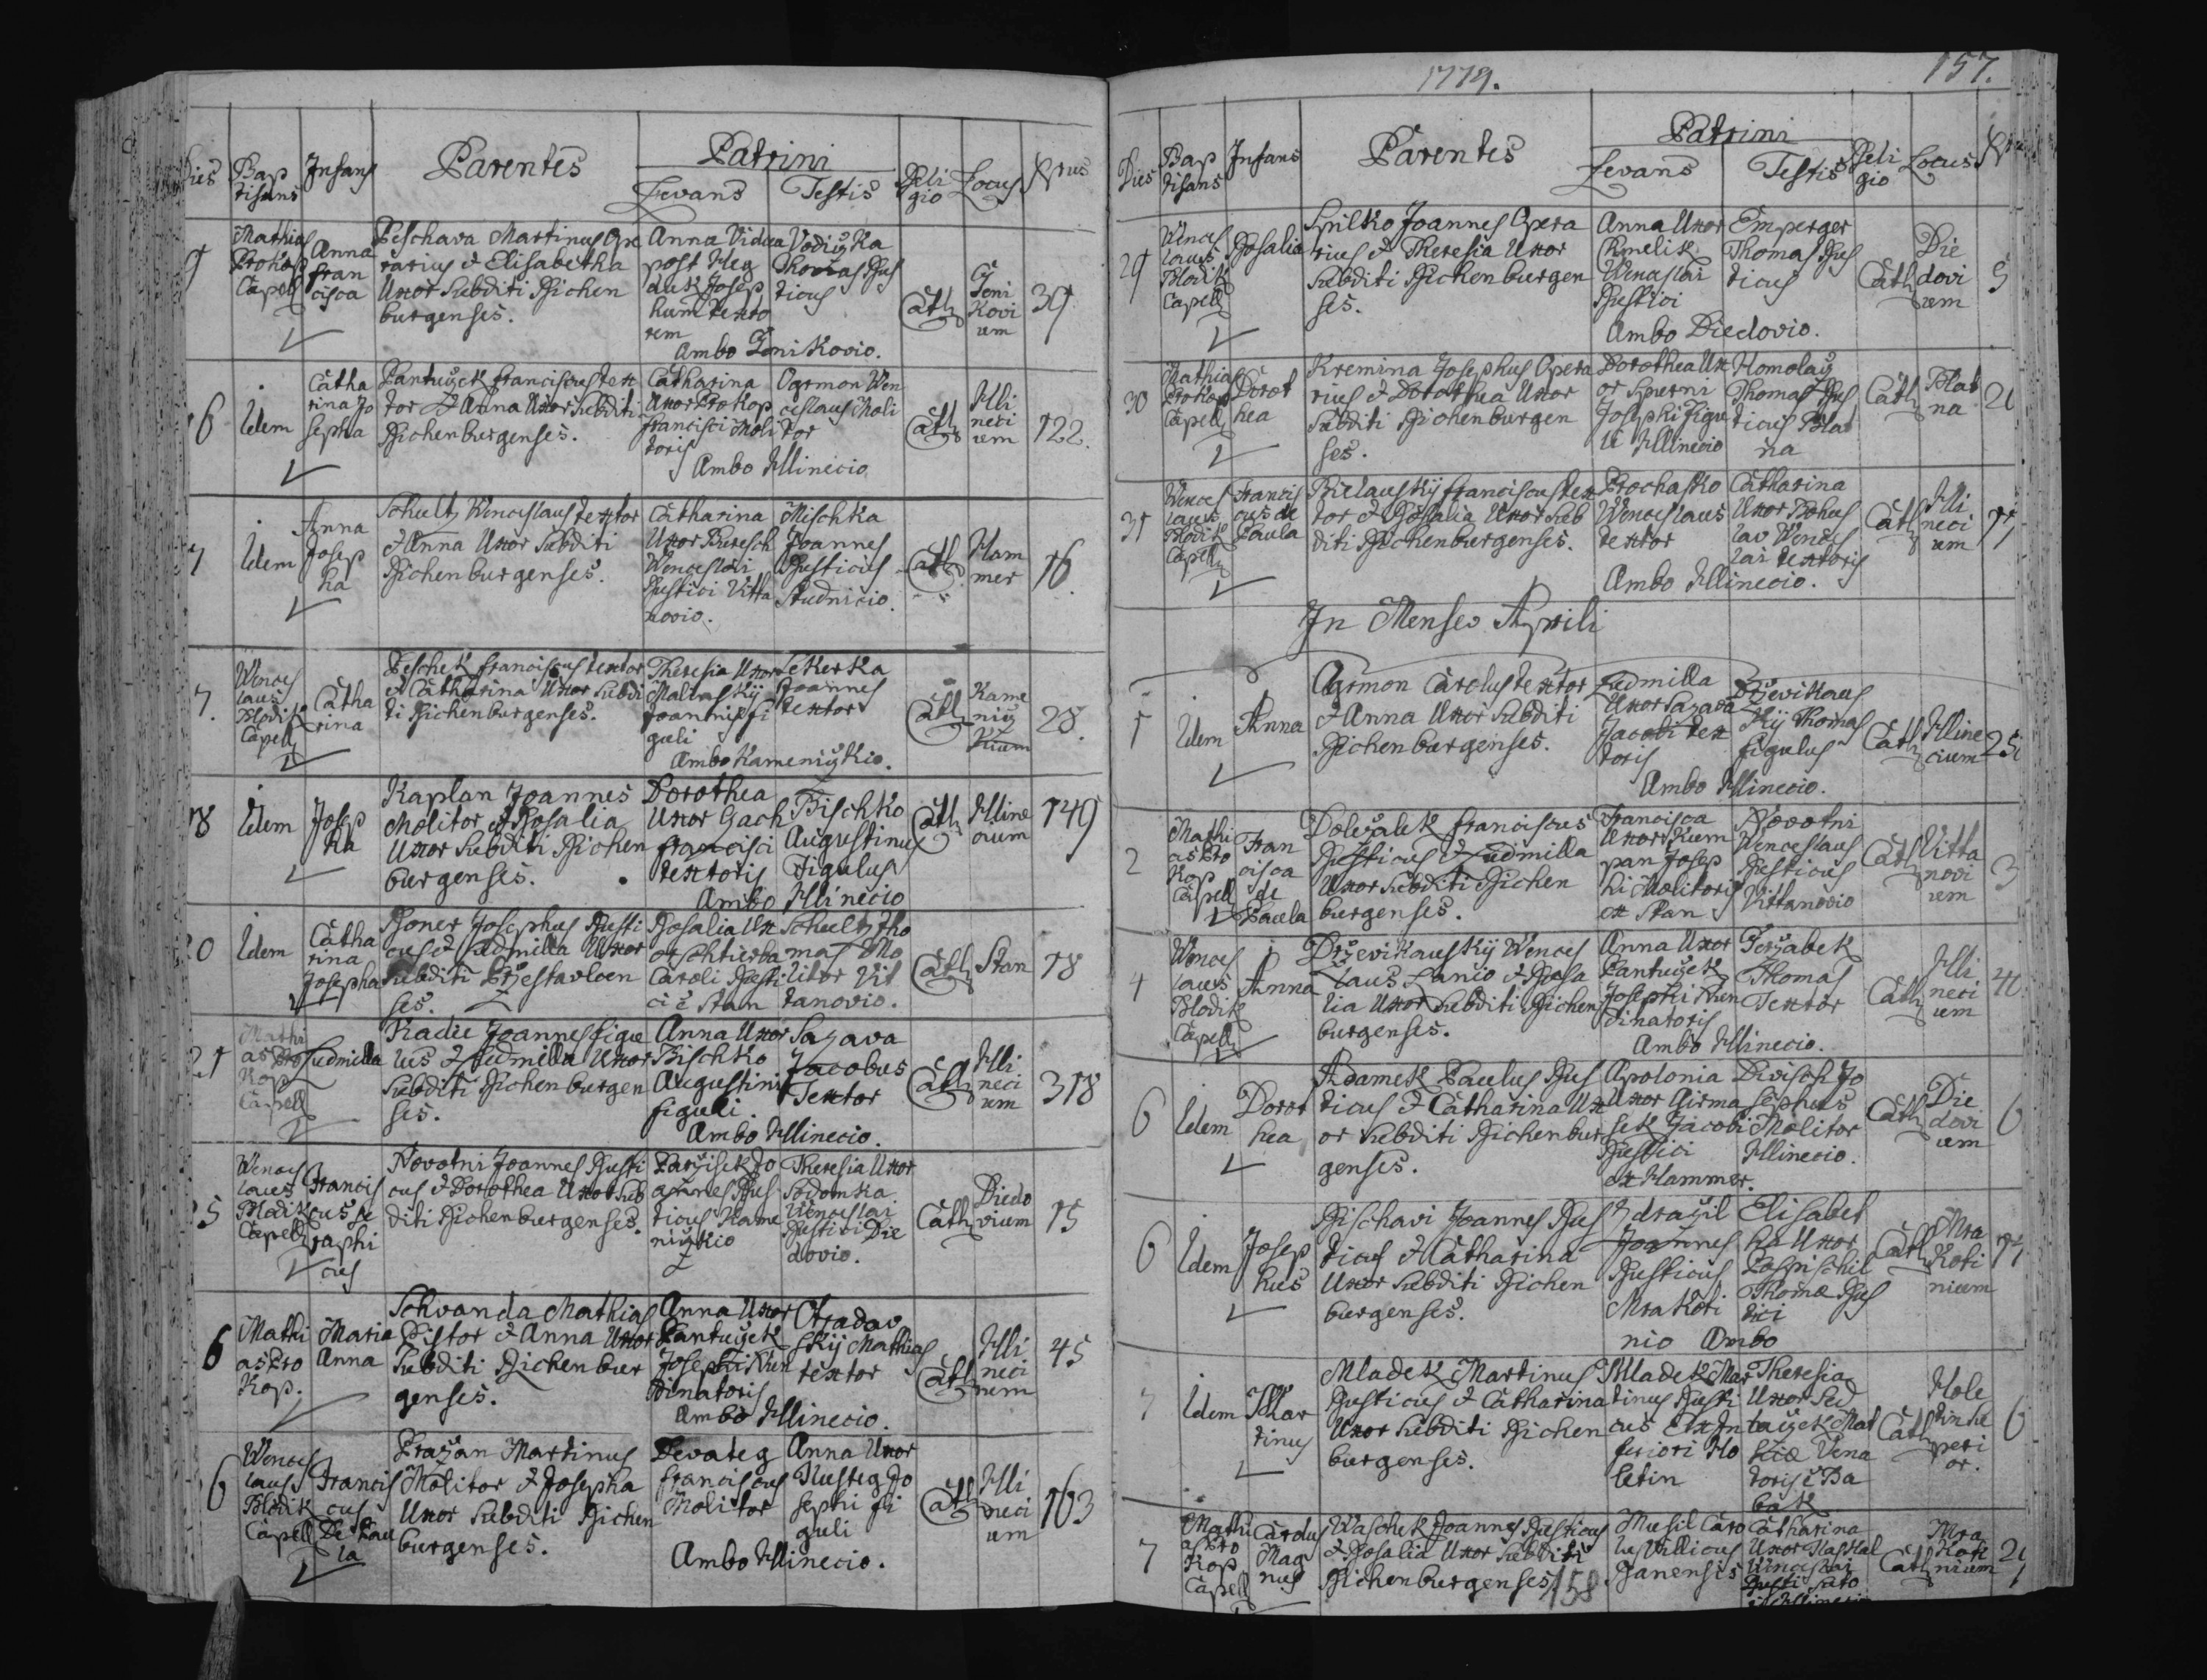 Dies
Bap
tisans
Infans
Parentes
Patrini
Levans
Testis
Reli
gio
Locus
Nrus
Mathias
Prokop
Capell
Anna
Fran
cisca
Peschava Martinus Ope
rarius & Elisabetha
Uxor Subditi Richen
burgenses.
Anna Vidua
post Heg
duk Josep
hum texto
rem
Vodiczka
Thomas Rus
ticus
Ambo Jenikovio.
Cath
Jeni
kovi
um
39
6
Idem
Catha
rina Jo
sepha
Pantuczek Franciscus tex
tor & Anna Uxor Subditi
Richenburgenses.
Catharina
Uxor Prokop
Francisci Moli
toris
Ogrmon Wen
ceslaus Moli
tor
Ambo Hlinecio
Cath
Hli
neci
um
122.
7
Idem
Anna
Josep
ha
Schultz Wenceslaus textor
& Anna Uxor Subditi
Richenburgenses.
Catharina
Uxor Buresch
Wenceslai
Rustici Vitta
novio.
Mischka
Joannes
Rusticus
Studnicio.
Cath
Ham
mer
16.
7.
Wences
laus
Blodik
Capell
Catha
rina
Peschek Franciscus textor
& Catharina Uxor Subdi
ti Richenburgenses.
Theresia Uxor
Malinskij
Joannis fi
guli
Sekerka
Joannes
textor
Ambo Kameniczkio.
Cath
Kame
nicz
kium
28.
18
Idem
Josep
ha
Kaplan Joannes
Molitor & Rosalia
Uxor Subditi Richen
burgenses.
Dorothea
Uxor Gach
Francisci
textoris
Tischko
Augustinus
Figulus
Ambo Hlinecio
Cath
Hline
cium
149
20
Idem
Catha
rina
Josepha
Roner Josephus Rusti
cus & Ludmilla Uxor
Subditi Brzestavloen
ses.
Rosalia Ux
or Schtierba
Caroli Rusti
ci è Stan
Schultz Tho
mas Mo
litor Vit
tanovio.
Cath
Stan
18
21
Mathi
as Pro
kop
Capell
Ludmilla
Kadie Joannes figu
lus & Ludmilla Uxor
Subditi Richenburgen
ses.
Anna Uxor
Tischko
Augustini
figuli.
Sazava
Jacobus
Textor
Ambo Hlinecio.
Cath
Hli
neci
um
318
25
Wences
laus
Blodik
Capell
Francis
cus Se
raphi
cus
Novotni Joannes Rusti
cus & Dorothea Uxor Sub
diti Richenburgenses.
Parzisek Jo
annes Rus
ticus Kame
niczkio
Theresia Uxor
Sodomka
Wenceslai
Rustici Die
dovio.
Cath
Diedo
vium
15
6
Mathi
as Pro
kop.
Maria
Anna
Schvanda Mathias
Pistor & Anna Uxor
Subditi Richenbur
genses.
Anna Uxor
Pantuczek
Josephi Aren
dinatoris
Ohradov
skij Mathias
textor
Ambo Hlinecio.
Cath
Hli
neci
um
45
6
Wences
laus
Blodik
Capell
Francis
cus
De Pau
la
Prazan Martinus
Molitor & Josepha
Uxor Subditi Richen
burgenses.
Devateg
Franciscus
Molitor
Anna Uxor
Kusteg Jo
sephi fi
guli
Ambo Hlinecio.
Cath
Hli
neci
um
163
1779.
157.
Dies
Bap
tisans
Infans
Parentes
Patrini
Levans
Testis
Reli
gio
Locus
29
Wences
laus
Blodik
Capell
Rosalia
Spilko Joannes Opera
rius & Theresia Uxor
Subditi Richenburgen
ses.
Anna Uxor
Chmelik
Wenceslai
Rustici
Emperger
Thomas Rus
ticus
Ambo Diedovio.
Cath
Die
dovi
um
5
30
Mathias
Prokop
Capell
Dorot
hea
Kremina Josephus Opera
rius & Dorothea Uxor
Subditi Richenburgen
ses.
Dorothea Ux
or Spurni
Josephi Figu
li Hlinecio
Homolacz
Thomas Rus
ticus Blat
na
Cath
Blat
na
21
Wences
laus
Blodik
Capell
Francis
cus de
Paula
Bielauskij Franciscus tex
tor & Rosalia Uxor Sub
diti Richenburgenses.
Prochasko
Wenceslaus
textor
Catharina
Uxor Bohus
lav Wences
lai textoris
Ambo Hlinecio.
Cath
Hli
neci
um
In Mense Aprili
1
Idem
Anna
Ogrmon Carolus textor
& Anna Uxor Subditi
Richenburgenses.
Ludmilla
Uxor Sazava
Jacobi tex
toris
Drzevikaus
kij Thomas
figulus
Ambo Hlinecio.
Cath
Hline
cium
25
2
Mathi
as Pro
kop
Capell
Fran
cisca
de
Paula
Dolezalek Franciscus
Rusticus & Ludmilla
Uxor Subditi Richen
burgenses.
Francisca
Uxor Kum
pan Josep
hi Molitoris
ex Stan
Novotni
Wenceslaus
Rusticus
Vittanovio
Cath
Vitta
novi
um
3
4
Wences
laus
Blodik
Capell
Anna
Drzevikauskij Wences
laus Lanio & Rosa
lia Uxor Subditi Richen
burgenses.
Anna Uxor
Pantuczek
Josephi Aren
dinatoris
Jerzabek
Thomas
Textor
Ambo Hlinecio.
Cath
Hli
neci
um
6
Idem
Dorot
hea
Adamek Paulus Rus
ticus & Catharina Ux
or Subditi Richenbur
genses.
Apolonia
Uxor Girma
sek Jacobi
Rustici
ex Hammer.
Divisch Jo
sephus
Molitor
Hlinecio.
Cath
Die
dovi
um
6
6
Idem
Josep
hus
Rischavi Joannes Rus
ticus & Catharina
Uxor Subditi Richen
burgenses.
Zdrazil
Joannes
Rusticus
Mrakoti
nio
Elisabet
ha Uxor
Pospischil
Thomæ Rus
tici
Ambo
Cath
Mra
koti
nium
7
Idem
Mar
tinus
Mladek Martinus
Rusticus & Catharina
Uxor Subditi Richen
burgenses.
Mladek Mar
tinus Rusti
cus Ex In
feriori Ho
letin
Theresia
Uxor Sed
laczek Mat
hiæ Vena
toris è Ba
bak
Cath
Hole
tin Su
peri
or.
6
7
Mathi
as Pro
kop
Capell
Carolus
Mag
nus
Waschek Joannes Rusticus
& Rosalia Uxor Subditi
Richenburgenses
158
Musil Caro
lus Villicus
Ranensis
Catharina
Uxor Haskal
Wenceslai
Cath
Mra
koti
nium